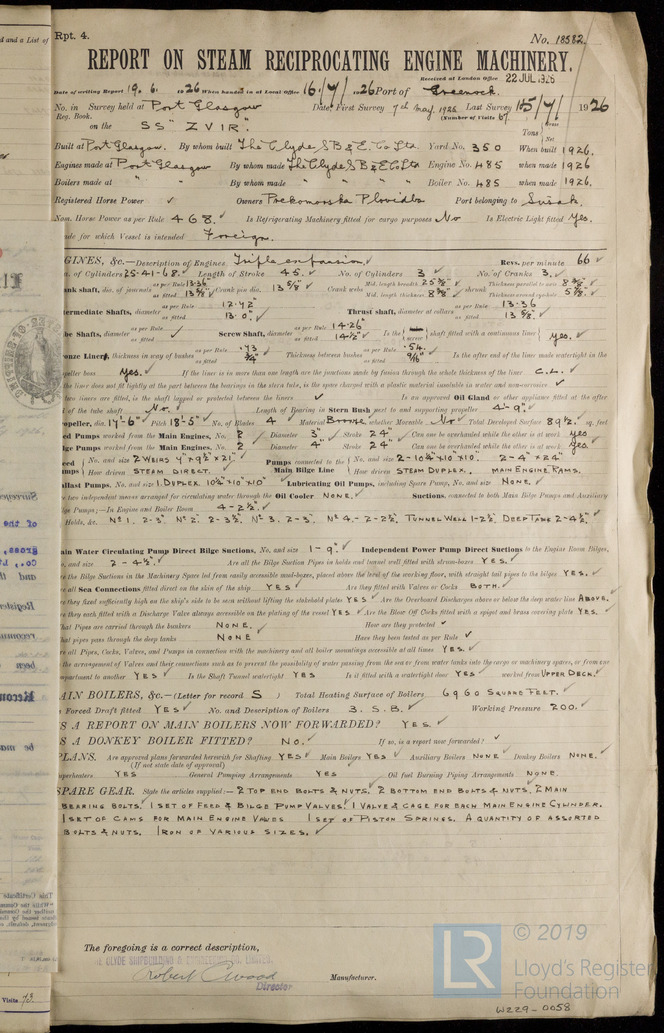 d and a List of
Rpt. 4.
No. 18582.
REPORT ON STEAM RECIPROCATING ENGINE MACHINERY.
Received at London Office 22 JUL 1926
Date of writing Report 19. 6. 1926 When handed in at Local Office 16/7/1926 Port of Greenock.
No. in Survey held at Port Glasgow Date, First Survey 7th May, 1926 Last Survey 15/7/1926
Reg. Book. (Number of Visits
on the SS "ZVIR". Tons Gross Net
Built at Port Glasgow. By whom built The Clyde S B & E. Co Ltd. Yard No. 350 When built 1926.
Engines made at Port Glasgow By whom made The Clyde S B & E Co Ltd Engine No. 485 when made 1926
Boilers made at " " By whom made " " " " Boiler No. 485 when made 1926.
Registered Horse Power Owners Port belonging to Susak.
Nom. Horse Power as per Rule 468. Is Refrigerating Machinery fitted for cargo purposes No Is Electric Light fitted Yes.
ade for which Vessel is intended Foreign.
GINES, &c.—Description of Engines Triple expansion Revs. per minute 66
. of Cylinders 25-41-68. Length of Stroke 45. No. of Cylinders 3 No. of Cranks 3.
ank shaft, dia. of journals as per Rule 13.36" as fitted 13 5/8" Crank pin dia. 13 5/8" Crank webs Mid. length breadth 25 5/8" Mid. length thickness 8 3/8" shrunk Thickness parallel to axis 8 3/8" Thickness around eyehole 5 7/8"
termediate Shafts, diameter as per Rule 12.42" as fitted 13.0" Thrust shaft, diameter at collars as per Rule 13.36 as fitted 13 5/8"
be Shafts, diameter as per Rule as fitted Screw Shaft, diameter as per Rule 14.26" as fitted 14 1/2" Is the screw shaft fitted with a continuous liner Yes.
ronze Liners, thickness in way of bushes as per Rule .73 as fitted 3/4" Thickness between bushes as per Rule .54 as fitted 9/16" Is the after end of the liner made watertight in the
peller boss Yes. If the liner is in more than one length are the joints made by fusion through the whole thickness of the liner C.L.
the liner does not fit tightly at the part between the bearings in the stern tube, is the space charged with a plastic material insoluble in water and non-corrosive
two liners are fitted, is the shaft lapped or protected between the liners Is an approved Oil Gland or other appliance fitted at the after
of the tube shaft No. Length of Bearing in Stern Bush next to and supporting propeller 4'-9"
opeller, dia. 17'-6" Pitch 18'-5" No. of Blades 4 Material Bronze whether Moveable No Total Developed Surface 89 1/2 sq. feet
ed Pumps worked from the Main Engines, No. 2 Diameter 3" Stroke 24" Can one be overhauled while the other is at work Yes
lge Pumps worked from the Main Engines, No. 2 Diameter 4" Stroke 24" Can one be overhauled while the other is at work Yes
eed umps No. and size 2 Weirs 7" x 9 1/2" x 21" How driven STEAM DIRECT. Pumps connected to the Main Bilge Line No. and size 2-10 1/4" x 10" x 10". 2-4" x 24" How driven STEAM DUPLEX. MAIN ENGINE RAMS.
allast Pumps, No. and size 1. DUPLEX 10 1/4" x 10" x 10" Lubricating Oil Pumps, including Spare Pump, No. and size NONE.
re two independent means arranged for circulating water through the Oil Cooler NONE. Suctions, connected to both Main Bilge Pumps and Auxiliary
ge Pumps;—In Engine and Boiler Room 4-2 1/2".
Holds, &c. No 1. 2-3". No 2. 2-3 1/2". No 3. 2-3". No 4. -2-2 1/2". TUNNEL WELL 1-2 1/2". DEEP TANK 2-4 1/2"
ain Water Circulating Pump Direct Bilge Suctions, No. and size 1-9". Independent Power Pump Direct Suctions to the Engine Room Bilges,
. and size 2-4 1/2". Are all the Bilge Suction Pipes in holds and tunnel well fitted with strum-boxes YES.
re the Bilge Suctions in the Machinery Space led from easily accessible mud-boxes, placed above the level of the working floor, with straight tail pipes to the bilges YES.
re all Sea Connections fitted direct on the skin of the ship YES Are they fitted with Valves or Cocks BOTH.
re they fixed sufficiently high on the ship's side to be seen without lifting the stokehold plates YES Are the Overboard Discharges above or below the deep water line ABOVE.
re they each fitted with a Discharge Valve always accessible on the plating of the vessel YES Are the Blow Off Cocks fitted with a spigot and brass covering plate YES.
hat Pipes are carried through the bunkers NONE. How are they protected
hat pipes pass through the deep tanks NONE Have they been tested as per Rule
re all Pipes, Cocks, Valves, and Pumps in connection with the machinery and all boiler mountings accessible at all times YES.
the arrangement of Valves and their connections such as to prevent the possibility of water passing from the sea or from water tanks into the cargo or machinery spaces, or from one
mpartment to another YES Is the Shaft Tunnel watertight YES Is it fitted with a watertight door YES worked from UPPER DECK.
AIN BOILERS, &c.—(Letter for record S ) Total Heating Surface of Boilers 6960 SQUARE FEET.
Forced Draft fitted YES No. and Description of Boilers 3. S.B. Working Pressure 200.
S A REPORT ON MAIN BOILERS NOW FORWARDED? YES.
S A DONKEY BOILER FITTED? NO. If so, is a report now forwarded?
LANS. Are approved plans forwarded herewith for Shafting YES Main Boilers YES Auxiliary Boilers NONE Donkey Boilers NONE.
(If not state date of approval)
uperheaters YES General Pumping Arrangements YES Oil fuel Burning Piping Arrangements NONE.
SPARE GEAR. State the articles supplied:— 2 TOP END BOLTS & NUTS. 2 BOTTOM END BOLTS & NUTS. 2 MAIN
BEARING BOLTS. 1 SET OF FEED & BILGE PUMP VALVES. 1 VALVE & CAGE FOR EACH MAIN ENGINE CYLINDER.
1 SET OF CAMS FOR MAIN ENGINE VALVES 1 SET OF PISTON SPRINGS. A QUANTITY OF ASSORTED
BOLTS & NUTS. IRON OF VARIOUS SIZES.
The foregoing is a correct description,
THE CLYDE SHIPBUILDING & ENGINEERING CO. LIMITED,
Director
Manufacturer.
Visits 73.
LR © 2019
Lloyd's Register
Foundation
W229-0058